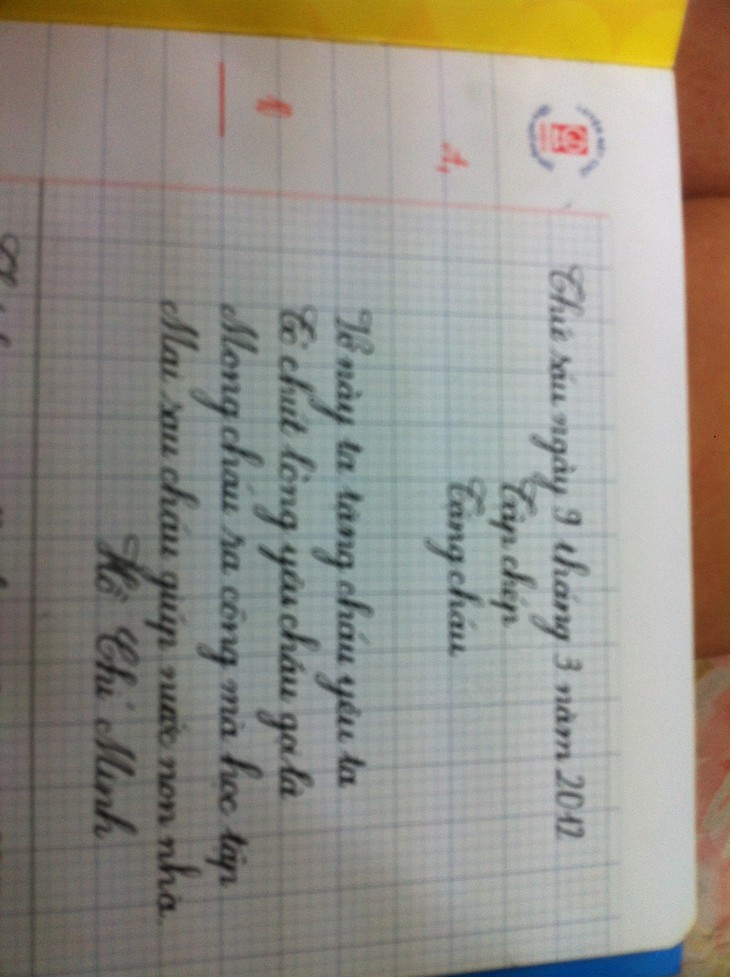 Thứ sáu ngày 9 tháng 3 năm 2012
Tập chép
Tặng cháu
Vở này ta tặng cháu yêu ta
Tỏ chút lòng yêu cháu gọi là
Mong cháu ra công mà học tập
Mai sau cháu giúp nước non nhà.
Hồ Chí Minh